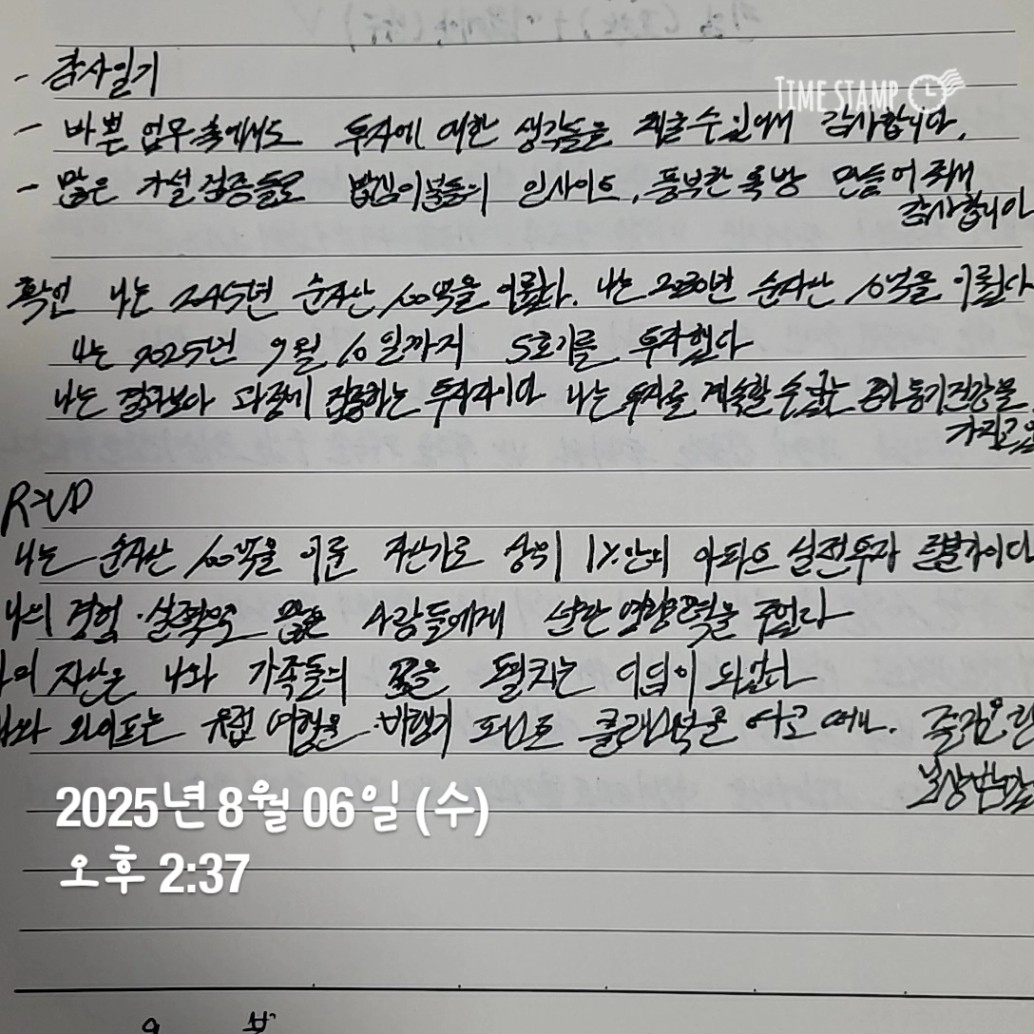 TIME STAMP
- 감사일기
- 바쁜 업무 속에서도 투자에 대한 생각들을 해볼 수 있어서 감사합니다.
- 많은 가설 검증들로 이분들의 인사이트, 풍부한 톡방 만들어줘서
감사합니다
확언 나는 2045년 순자산 100억을 이뤘다. 나는 2030년 순자산 10억을 이뤘다
나는 2025년 9월 10일까지 5호기를 투자했다
나는 결과보다 과정에 집중하는 투자자이다 나는 투자를 계속할 수 있는 동기 건강을
R=VD
나는 순자산 100억을 이룬 자산가로 상위 1% 안의 아파트 실전투자 이다
나의 경험·실력으로 많은 사람들에게 선한 영향력을 주었다
나의 자산은 나와 가족들의 꿈을 펼치는 이 되었다
나와 와이프는 유럽 여행을 비행기 클래스석을 타고
2025년 8월 06일 (수)
오후 2:37